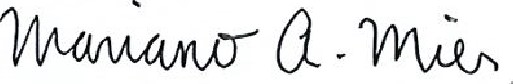 Mariano A. Mier